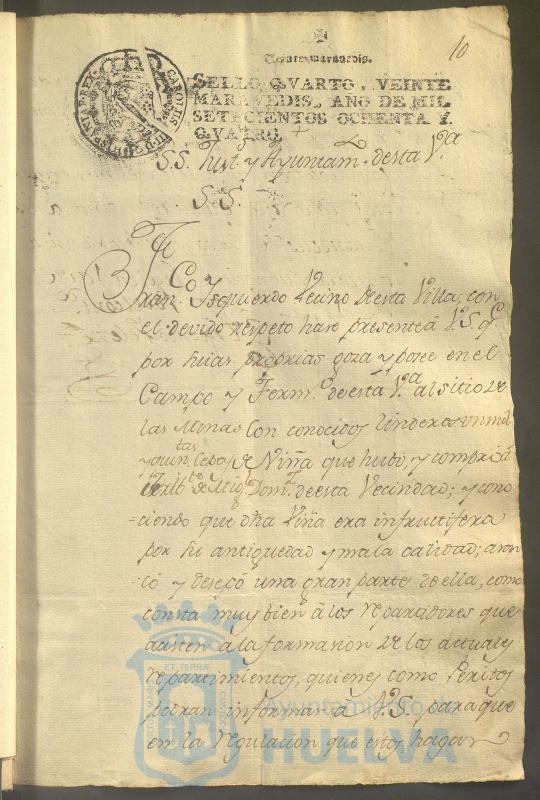 10
SELLO QVARTO, VEINTE
MARAVEDIS, AÑO DE MIL
SETECIENTOS OCHENTA Y
QVATRO.
S.S. Just.ª y Ayuntam.to desta V.ª
S. S.
Fran.co Ysquierdo Vecino desta Villa, con
el devido respeto hase presente á V.S. q.e
por suias proprias goza y posee en el
Campo y Term.o de esta V.ª al sitio de
las Minas Con conocidos linderos un mil
y quin.tas Cepas de Viña que hubo, y compró
de Mig.l Dom.z de esta Vecindad; y cono
=ciendo que dha Viña era infructifera
por su antiguedad y mala calidad; aran
có y desepó una gran parte de ella, como
consta muy bien á los Repartidores que
asisten á la formasion de los actuales
repartimientos, quienes como Peritos
podran informar á V.S. para que
en la regulacion que estos hagan
Ayuntamiento de
HUELVA